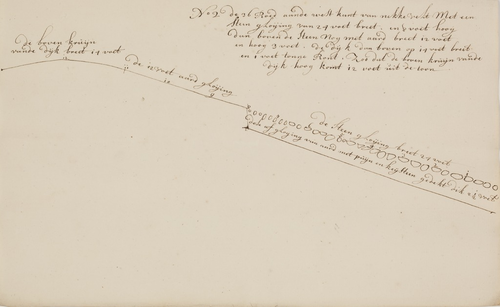 No 3 de 36 Roed aande west kant van nekke velt Met een
Steen gloying van 24 voet breet en voet hoog
Daer boven de Steen Nog met aard breet 12 voet
en hoog 3 voet. De dijk dan boven op 14 voet breet
en 1 voet tonne Ront. Zoo dat de boven kruijn vande
dijk hoog komt 12 voet uit de
De boven kruijn
vande dijk breet 14 voet
De 12 voet aard gloying
De Steen gloying breet 24 voet
Dese af gloying van aard met puijn en gedekt dik voet